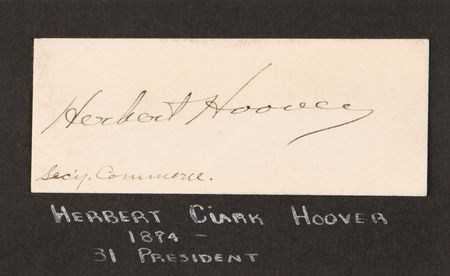 Herbert Hoover
Secy. Commerce.
HERBERT CLARK HOOVER
1874 –
31 PRESIDENT